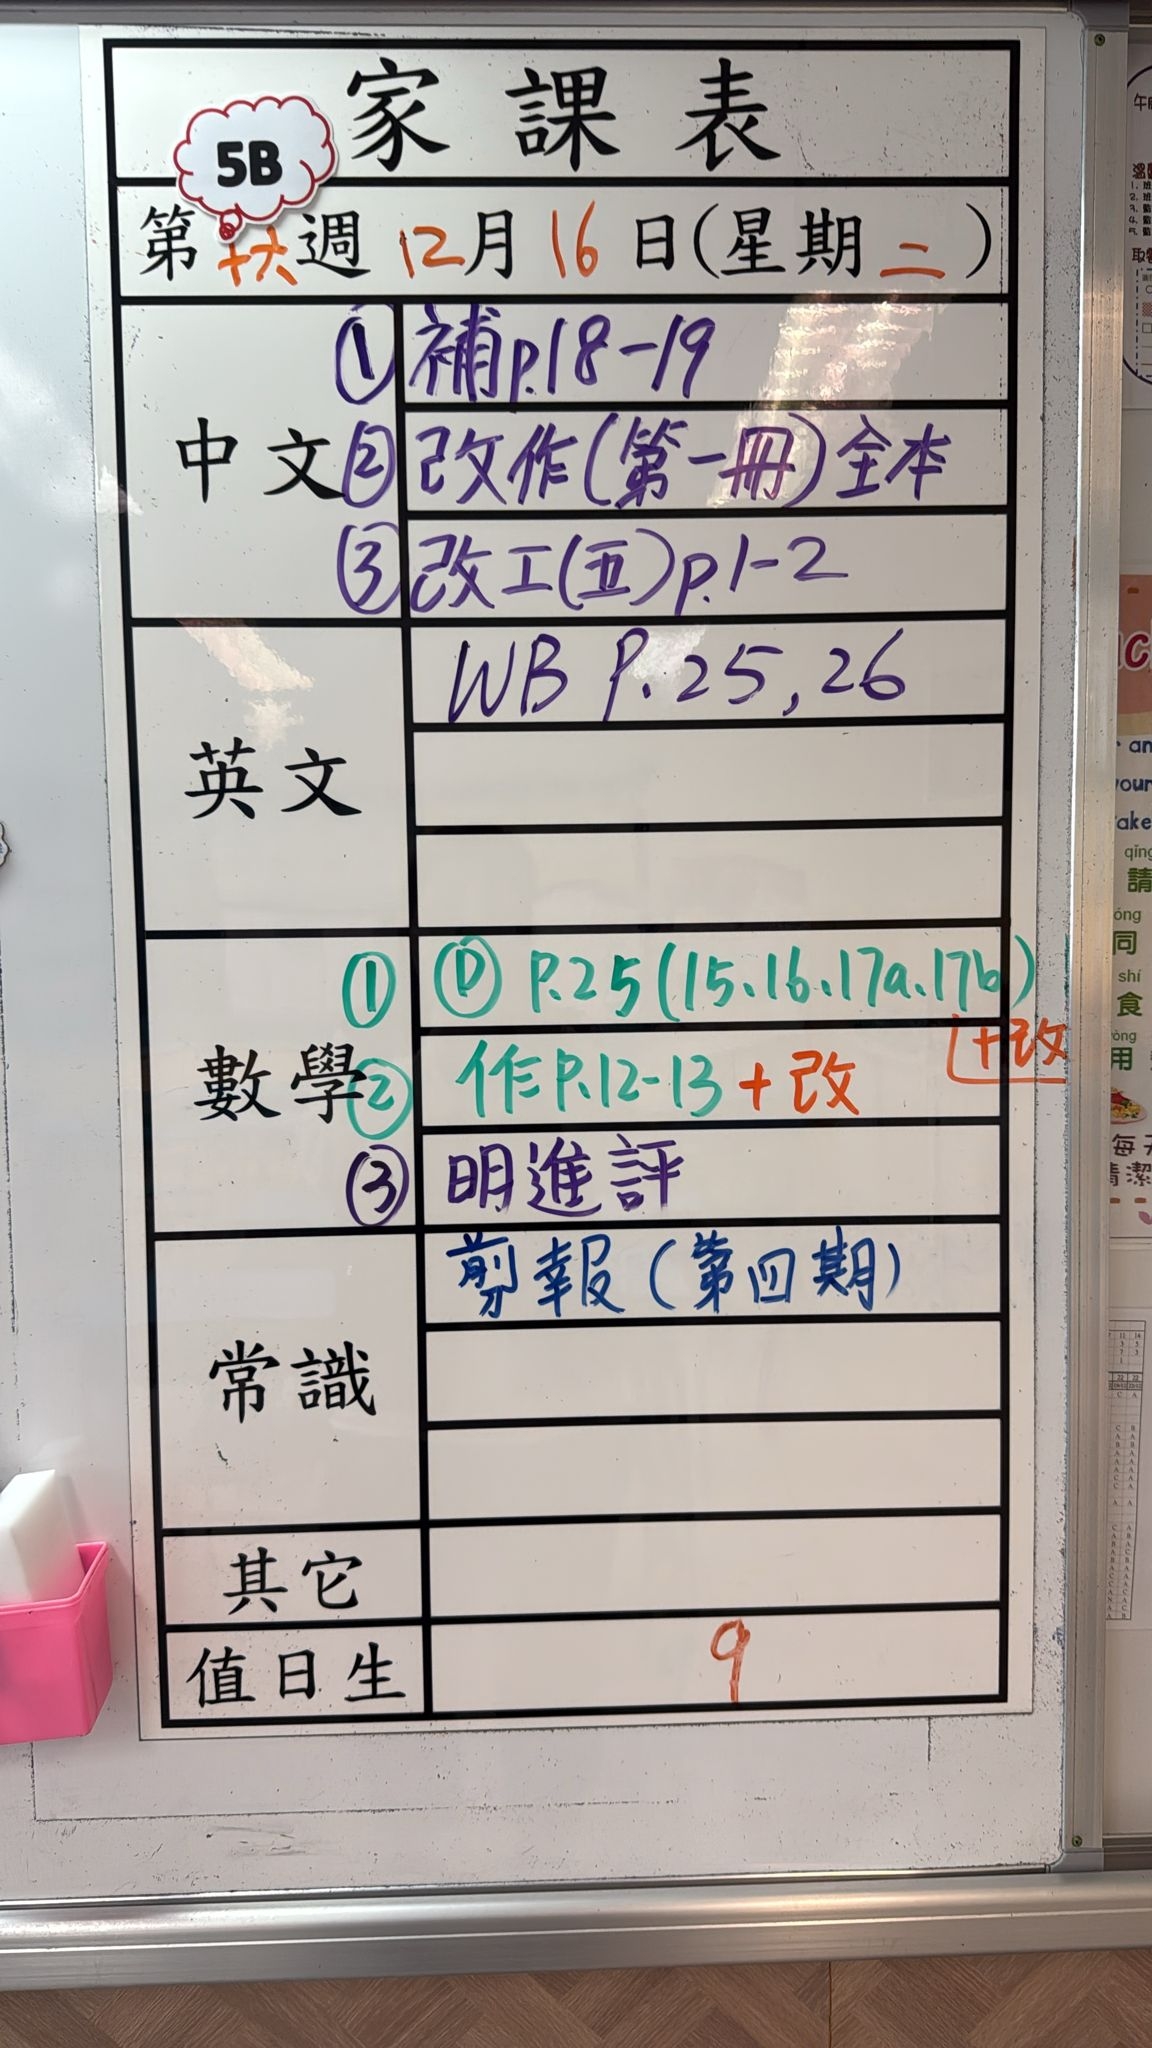 家課表
5B
第十六週 12月16日(星期二)
中文
① 補p.18-19
② 改作(第一冊)全本
③ 改工(五)p.1-2
英文
WB P.25,26
數學
① Ⓓ P.25(15、16、17a、17b)
+改
② 作P.12-13+改
③ 明進評
常識
剪報(第四期)
其它
值日生
9
請
同
食
用